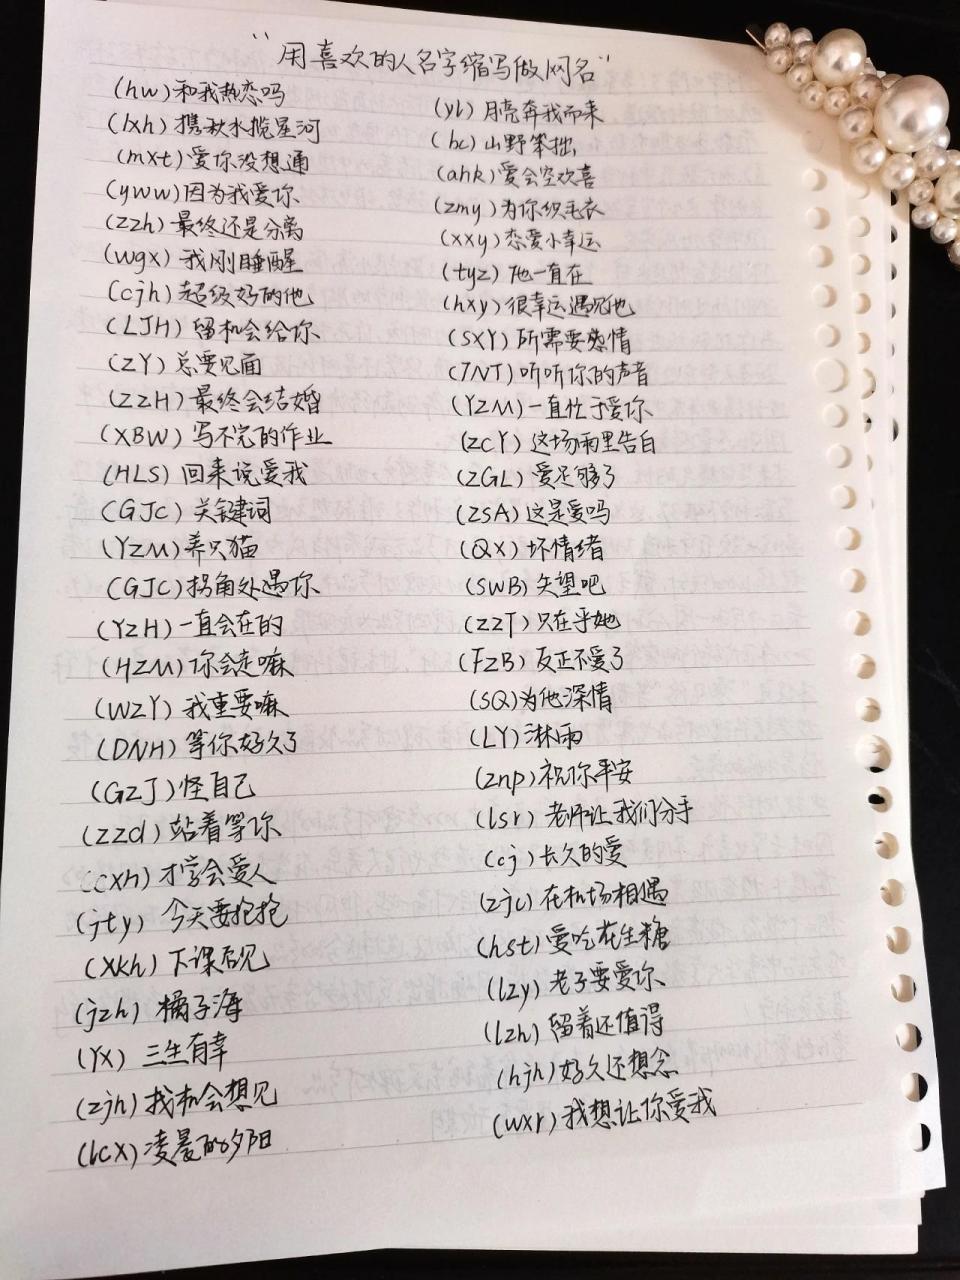 "用喜欢的人名字缩写做网名"
(hw)和我热恋吗
(lxh)携秋水揽星河
(mxt)爱你没想通
(yww)因为我爱你
(zzh)最终还是分离
(wgx)我刚睡醒
(cjh)超级好的他
(LJH)留机会给你
(ZY)总要见面
(ZZH)最终会结婚
(XBW)写不完的作业
(HLS)回来说爱我
(GJC)关键词
(YZM)养只猫
(GJC)拐角处遇你
(YZH)一直会在的
(HZM)你会走嘛
(WZY)我重要嘛
(DNH)等你好久了
(GZJ)怪自己
(zzd)站着等你
(cxh)才学会爱人
(jty)今天要抱抱
(xkh)下课后见
(jzh)橘子海
(YX)三生有幸
(zjh)找机会想见
(lcx)凌晨的夕阳
(yl)月亮奔我而来
(bc)山野笨拙
(ahk)爱会空欢喜
(zmy)为你织毛衣
(xxy)恋爱小幸运
(tyz)他一直在
(hxy)很幸运遇见他
(SXY)所需要热情
(TNT)听听你的声音
(YZM)一直忙于爱你
(ZCY)这场雨里告白
(ZGL)爱足够了
(ZSA)这是爱吗
(QX)坏情绪
(SWB)失望吧
(ZZT)只在乎她
(FZB)反正不爱了
(SQ)为他深情
(LY)淋雨
(znp)祝你平安
(lsr)老师让我们分手
(cj)长久的爱
(zjc)在机场相遇
(hst)爱吃花生糖
(lzy)老子要爱你
(lzh)留着还值得
(hjh)好久还想念
(wxr)我想让你爱我